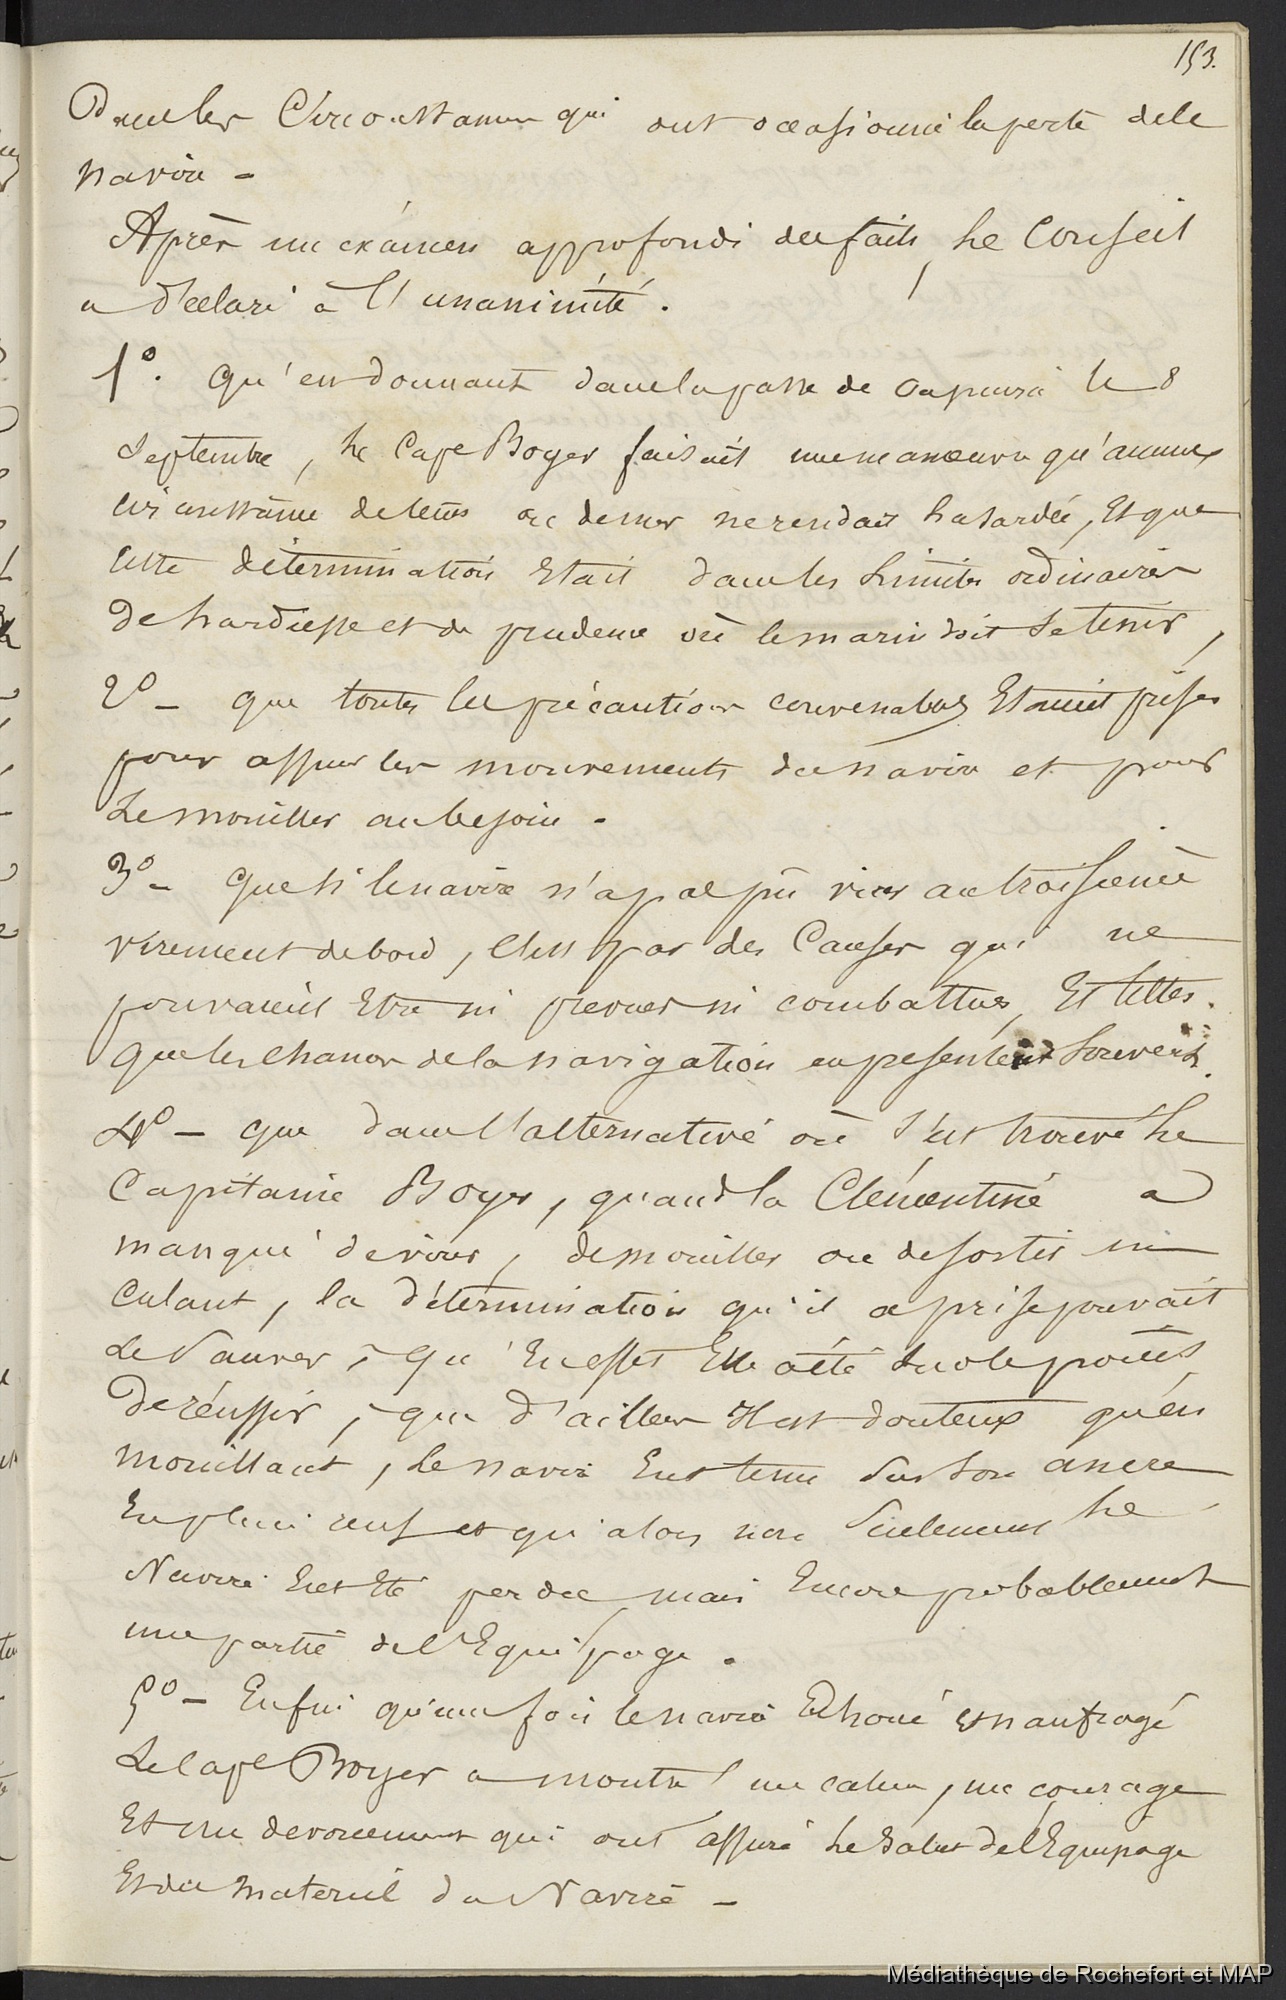 153.
Dans les Circonstances qui ont occasionné la perte de le
navire -
Après un exámen approfondi des faits, Le Conseil
a déclaré à l'unanimité.
1°. Qu'en donnant dans la passe de le 8
Septembre, Le Cape Boyer faisait une manœuvre qu'aucune
circonstance de tems ou de mer ne rendait hasardée, Et que
cette détermination Etait dans les Limites ordinaires
De hardiesse et de prudence où le marin doit se tenir,
2° - que toutes les précautions convenables Etaient prises
pour assurer les mouvements du navire et pour
Le mouiller au besoin.
3° - que si le navire n'a pas pu virer au troisième
virement de bord, c'est par des Causes qui ne
pouvaient Etre ni prevues ni combattues, Et telles
que les chances de la navigation en presentent Souvent.
4° - que dans l'alternative où s'est trouvé Le
Capitaine Boyer, quand la Clémentine a
manqué de virer, de mouiller ou de sortir en
Culant, la détermination qu'il a prise pouvait
Le Sauver, - qu'En effet Elle a été sur le point
De réussir, - que d'ailleurs Il est douteux qu'en
mouillant, Le navire Eut tenu sur son ancre
et qu'alors non Seulement Le
Navire Eut Eté perdu mais Encore probablement
une partie de l'Equipage.
5° - Enfin qu'une fois le navire Echoué et naufragé
Le Cape Boyer a montré un calme, un courage
Et un devouement qui ont assuré Le Salut de l'Equipage
Et du materiel du Navire -
Médiathèque de Rochefort et MAP